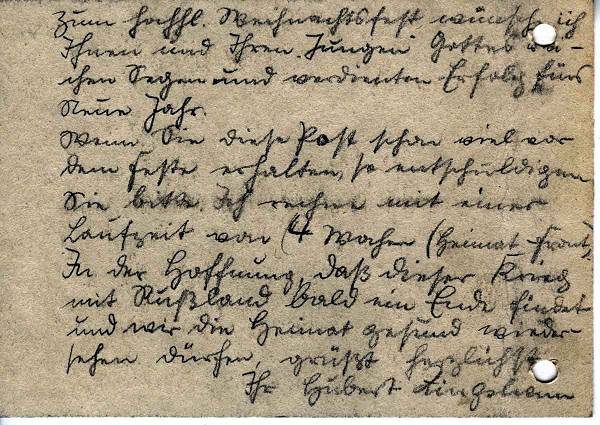 Zum hochhl. Weihnachtsfest wünsche ich
Ihnen und Ihren Jungen Gottes rei-
chen Segen und verdienten Erfolg fürs
Neue Jahr.
Wenn Sie diese Post schon viel vor
dem Feste erhalten, so entschuldigen
Sie bitte. Ich rechne mit einer
Laufzeit von 4 Wochen (Heimat-Front)
In der Hoffnung, daß dieser Krieg
mit Rußland bald ein Ende findet
und wir die Heimat gesund wieder-
sehen dürfen, grüßt herzlichst
Ihr Hubert